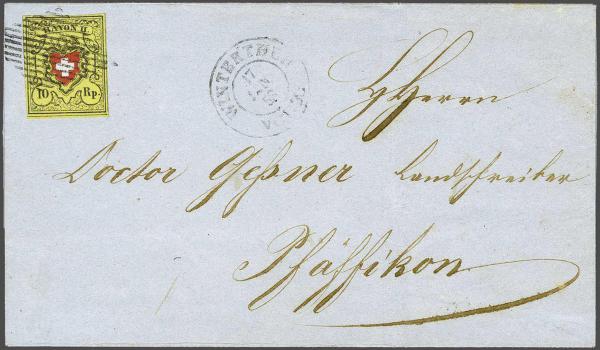 RAYON II
10 Rp.
WINTERTHUR
HHerrn
Doctor Geßner Landschreiber
Pfäffikon